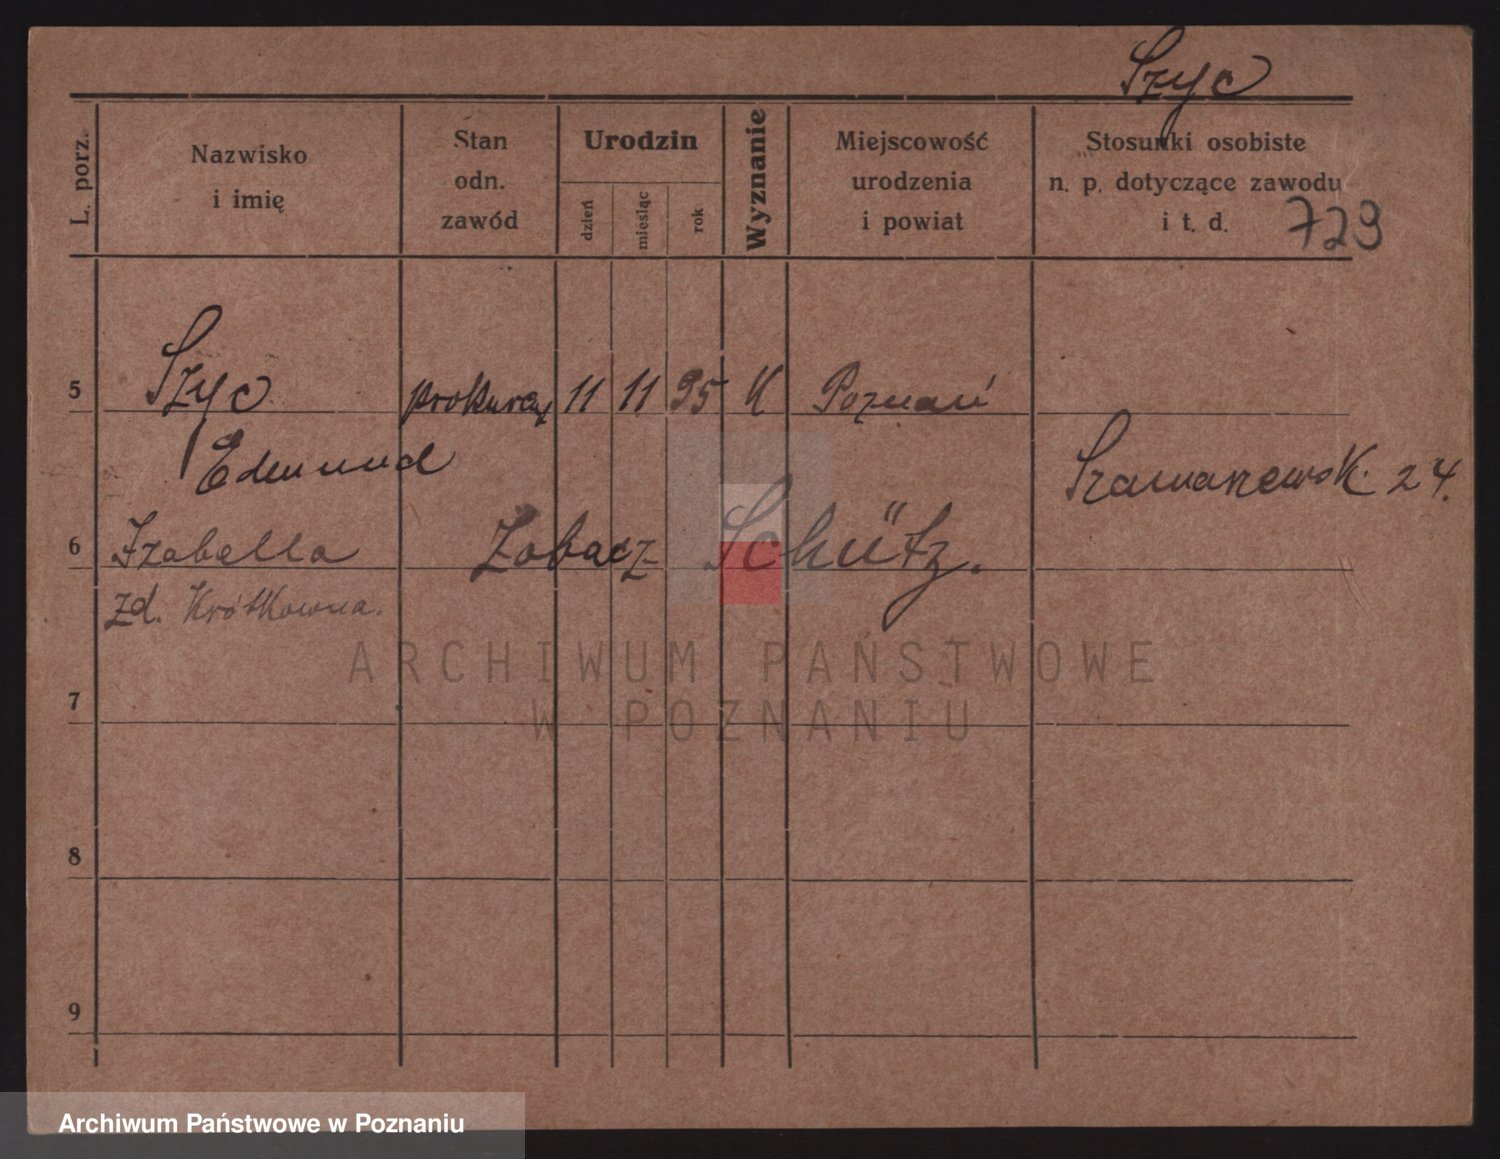 Szyc
L. porz.
Nazwisko
i imię
Stan
odn.
zawód
Urodzin
dzień
miesiąc
rok
Wyznanie
Miejscowość
urodzenia
i powiat
Stosunki osobiste
n. p. dotyczące zawodu
i t. d.
729
5 Szyc 11 11 95 K Poznań
Edmund
24.
6 Izabella Zobacz Schütz.
zd. Krótkowna.
ARCHIWUM PAŃSTWOWE
W POZNANIU
7
8
9
Archiwum Państwowe w Poznaniu